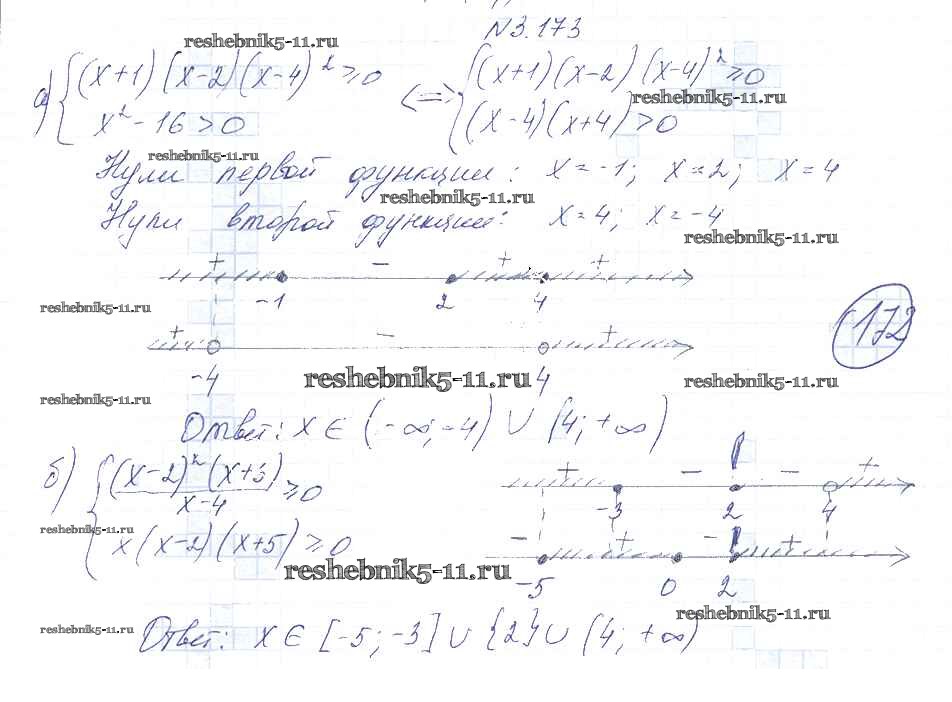 N3.173
reshebnik5-11.ru
а) { (x+1)(x-2)(x-4)² ≥ 0 <=> { (x+1)(x-2)(x-4)² ≥ 0
x² - 16 > 0 (x-4)(x+4) > 0
reshebnik5-11.ru
reshebnik5-11.ru
Нули первой функции: x = -1; x = 2; x = 4
reshebnik5-11.ru
Нули второй функции: x = 4; x = -4
reshebnik5-11.ru
+ - + +
-1 2 4
reshebnik5-11.ru
172
+ - +
-4 4
reshebnik5-11.ru
reshebnik5-11.ru
reshebnik5-11.ru
Ответ: x ∈ (-∞; -4) ∪ (4; +∞)
б) { (x-2)²(x+3)/(x-4) ≥ 0
+ - - +
-3 2 4
reshebnik5-11.ru
x(x-2)(x+5) ≥ 0
- + - +
-5 0 2
reshebnik5-11.ru
reshebnik5-11.ru
reshebnik5-11.ru
Ответ: x ∈ [-5; -3] ∪ {2} ∪ (4; +∞)